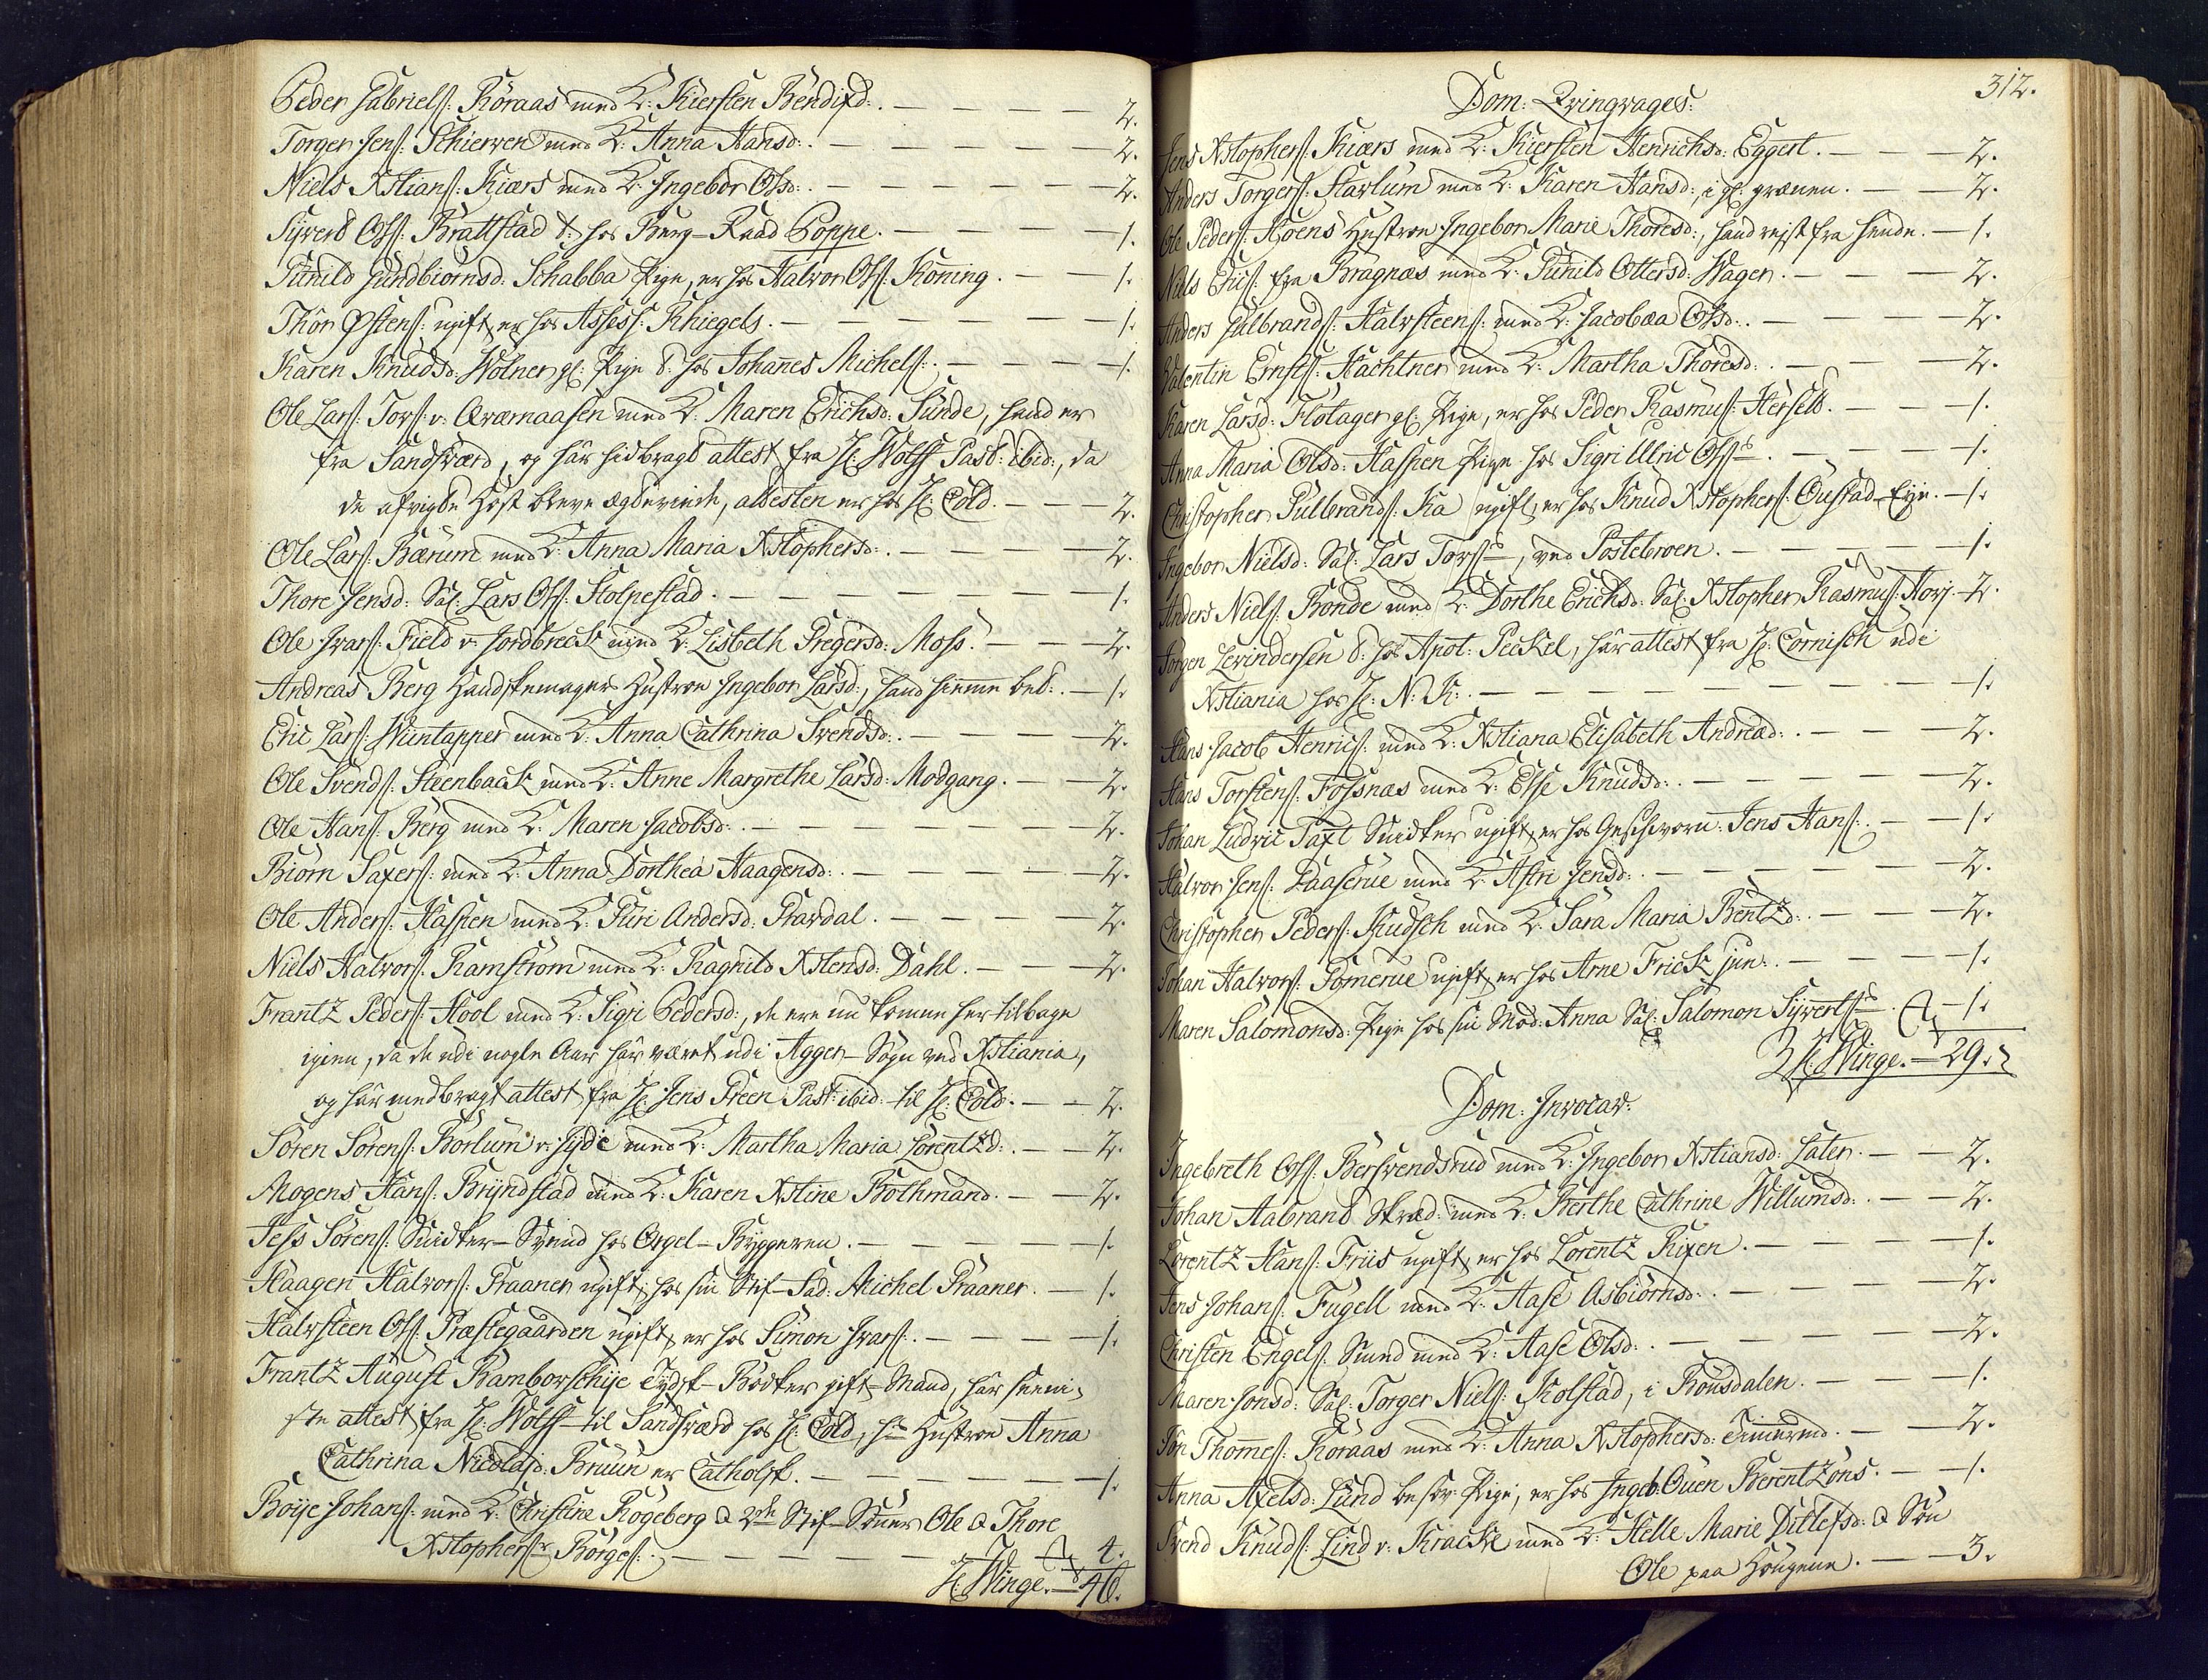 Peder Gabriels: Röraas med K: Kiersten Bendixd: . — 2.
Torger Jens: Schierven med K: Anna Hansd: . — 2.
Niels Xstians: Kiærs med K: Ingebor Olsd: . — 2.
Syvert Ols: Brattstad t: hos Berg-Raad Poppe. — 1.
Gunild Gundbiörnsd: Schabba Pige, er hos Halvor Ols: Köning. — 1.
Thor Østens: ugift, er hos Assess: Khiegels. — 1.
Karen Knudsd: Wölner gl: Pige t: hos Johanes Michels: . — 1.
Ole Lars: Tors: v: Qværnaasen med K: Maren Erichsd: Sunde, hand er
fra Sandsværd, og har hidbragt attest fra Hr: Wolff Past: ibid:, da
de afvigte Høst bleve ægteviede, attesten er hos Hr: Cold. — 2.
Ole Lars: Bærum med K: Anna Maria Xstophersd: . — 2.
Thore Jensd: Sal: Lars Ols: Stolpestad. — 1.
Ole Ivars: Field v: Jordbreck med K: Lisbeth Gregersd: Moss. — 2.
Andreas Berg Handskemagers Hustroe Ingebor Larsd:, hand hiemme bet: . — 1.
Eric Lars: Wiintapper med K: Anna Cathrina Svendsd: . — 2.
Ole Svends: Steenback med K: Anne Margrethe Larsd: Modgang. — 2.
Ole Hans: Berg med K: Maren Jacobsd: . — 2.
Biörn Saxers: med K: Anna Dorthea Haagensd: . — 2.
Ole Anders: Haslien med K: Guri Andersd: Gravdal. — 2.
Niels Halvors: Ramström med K: Ragnild Xstensd: Dahl. — 2.
Frantz Peders: Hool med K: Sigri Pedersd:, de ere nu komne her tilbage
igien, da de udi nogle Aar har været udi Agger-Sogn ved Xstiania,
og har medbragt attest fra Hr: Jens Green Past: ibid: til Hr: Cold. — 2.
Sören Sörens: Borlum v: Gyde med K: Martha Maria Lorentzd: . — 2.
Mogens Hans: Bryndstad med K: Karen Xstine Bothmand. — 2.
Jess Sörens: Snidker-Svend hos Orgel-Byggeren. — 1.
Haagen Halvors: Praaner ugift, hos sin Stif-Fad: Michel Praaner. — 1.
Halvsteen Ols: Præstegaarden ugift, er hos Simon Ivars: . — 1.
Frantz August Ramborschije Tydsk-Bödker gift-Mand, har hervi-
ste attest fra Hr: Wolff til Sandsværd hos Hr: Cold, hs Hustroe Anna
Cathrina Nicolajd: Bruun er Catholsk. — 1.
Böije Johans: med K: Christine Rogeberg & 2de Stif-Sönner Ole & Thore
Xstophers: Börges: . — 4.
Hr: Winge. — 46.
312.
Dom: Qvinqvages:
Jens Xstophers: Kiærs med K: Kiersten Henrichsd: Eggert. — 2.
Anders Torgers: Starlum med K: Karen Hansd:, i gl: grænen. — 2.
Ole Peders: Moens Hustroe Ingebor Marie Thoresd:, hand reist fra hende. — 1.
Niels Eris: fra Bragnæs med K: Gunild Ottersd: Wager. — 2.
Anders Gulbrands: Halvsteens: med K: Jacobæa Olsd: . — 2.
Valentin Ernsts: Hachtner med K: Martha Thoresd: . — 2.
Karen Larsd: Flötager gl: Pige, er hos Peder Rasmus: Herselb. — 1.
Anna Maria Olsd: Haslien Pige hos Sigri Ulric Ols. — 1.
Christopher Gulbrands: Ka ugift, er hos Knud Xstophers: Ouestad-Eye. — 1.
Ingebor Nielsd: Sal: Lars Tors, ved Postebroen. — 1.
Anders Niels: Bonde med K: Dorthe Erichsd: Sal: Xstopher Rasmus: Hovj — 2.
Jörgen Levindersen t: hos Apot: Peckel, har attest fra Hr: Cornisch udi
Xstiania hos Hr: N: K: . — 1.
Hans Jacob Henrics: med K: Xstiana Elisabeth Andread: . — 2.
Hans Torstens: Fossnæs med K: Else Knudsd: . — 2.
Johan Ludvic Taxt Snidker ugift, er hos Geschworn: Jens Hans: . — 1.
Halvor Jens: Daaserue med K: Astri Jensd: . — 2.
Christopher Peders: Kudsch med K: Sara Maria Bentzd: . — 2.
Johan Halvors: Gomerue ugift, er hos Arne Frick jun: . — 1.
Maren Salomonsd: Pige hos sin Mod: Anna Sal: Salomon Syverts. — 1.
Hr: Winge. — 29.
Dom: Invocav:
Ingebreth Ols: Bersvendsrud med K: Ingebor Xstiansd: Sater. — 2.
Johan Aabrand Skræd: med K: Berthe Cathrine Willumsd: . — 2.
Lorentz Hans: Friis ugift, er hos Lorentz Rixen. — 1.
Jens Johans: Fugell med K: Aase Asbiörnsd: . — 2.
Christen Engels: Smed med K: Aase Olsd: . — 2.
Maren Jonsd: Sal: Torger Niels: Kolstad, i Rousdalen. — 1.
Jon Thommes: Roraas med K: Anna Xstophersd: Timermd. — 2.
Anna Axelsd: Lund besov: Pige, er hos Ingeb: Ouen Berentzöns. — 1.
Svend Knuds: Lind v: Kracke med K: Helle Marie Ditlefsd: & Sön
Ole paa Hougene. — 3.